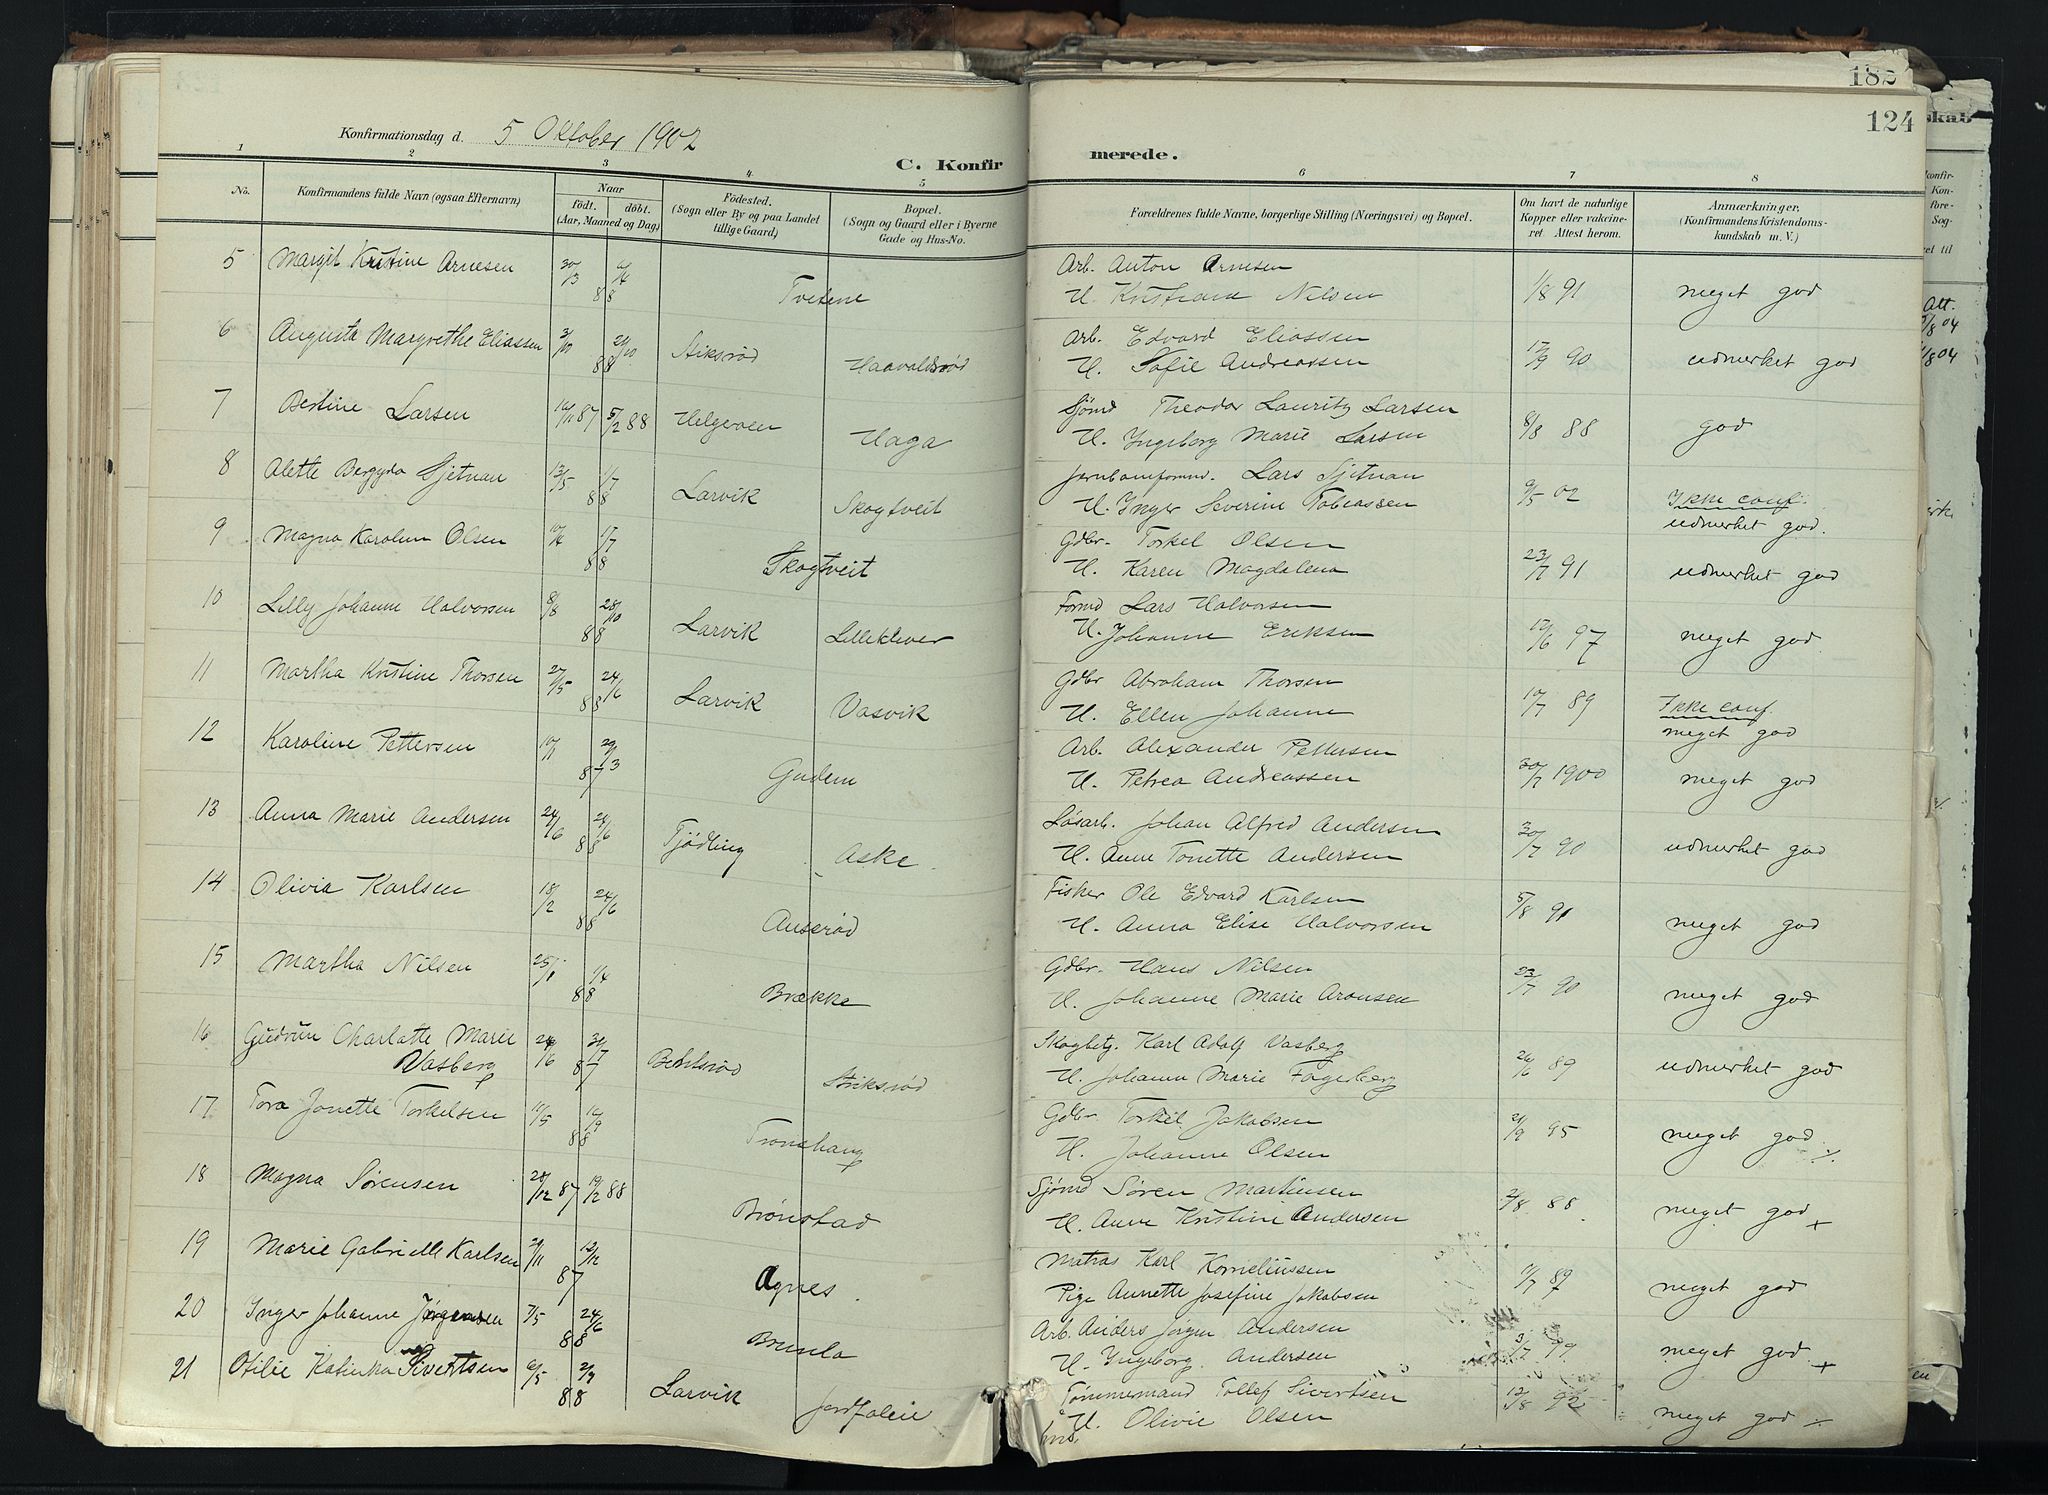 182
124
Konfirmationsdag d. 5 Oktober 1902
C. Konfirmerede.
1 2 3 4 5 6 7 8
No.
Konfirmandens fulde Navn (ogsaa Efternavn)
Naar
födt. döbt.
(Aar, Maaned og Dag)
Födested.
(Sogn eller By og paa Landet
tillige Gaard.)
Bopæl.
(Sogn og Gaard eller i Byerne
Gade og Hus-No.
Forældrenes fulde Navne, borgerlige Stilling (Næringsvei) og Bopæl.
Om havt de naturlige
Kopper eller vakcine-
ret Attest herom.
Anmærkninger,
(Konfirmandens Kristendoms-
kundskab m. V.)
5 Margit Kristine Arnesen 30/3 88 Tvetene
Arb. Anton Arnesen
H. Kristiane Nilsen 1/8 91 meget god
6 Augusta Margrethe Eliassen 88 Stiksrød Haavaldsrød
Arb. Edvard Eliassen
H. Sofie Andreassen 17/9 90 udmerket god
7 Bertine Larsen 87 5/2 88 Helgeroen Haga
Sjømd Theodor Lauritz Larsen
H. Ingeborg Marie Larsen 8/8 88 god
8 Alette Bergyda Sjetnan 13/5 1/7 88 Larvik Skogtveit
Lars Sjetnan
H. Inger Severine Tobiassen 9/5 02 Ikke conf.
udmerket god.
9 Magna Karoline Olsen 10/4 1/7 88 Skogtveit
Gdbr. Torkel Olsen
H. Karen Magdalena 23/7 91 udmerket god
10 Lilly Johanne Halvorsen 8/8 28/10 88 Larvik Lilleklever
Formd Lars Halvorsen
H. Johanne Eriksen 12/6 97 meget god
11 Martha Kristine Thorsen 27/5 24/6 88 Larvik Vasvik
Gdbr Abraham Thorsen
H. Ellen Johanne 10/7 89 Ikke conf.
meget god
12 Karoline Pettersen 10/1 29/3 87 Gudem
Arb. Alexander Pettersen
H. Petrea Andreassen 30/7 1900 meget god
13 Anna Marie Andersen 24/6 88 Tjødling Aske
Løsarb. Johan Alfred Andersen
H. Anne Tonette Andersen 30/7 90 udmerket god
14 Olivia Karlsen 18/2 24/6 88 Auserød
Fisker Ole Edvard Karlsen
H. Anna Elise Halvorsen 5/8 91 meget god
15 Martha Nilsen 25/1 1/4 88 Brække
Gdbr. Hans Nilsen
H. Johanne Marie Aronsen 23/7 90 meget god
16 Gudrun Charlotte Marie
Vasberg 87 Berktsrød Stiksrød
Skogbetj. Karl Adolf Vasberg
H. Johanne Marie Fagerberg 26/6 89 udmerket god
17 Tora Jonette Torkelsen 88 Tronshaug
Gdbr Torkil Jakobsen
H. Johanne Olsen 21/9 95 meget god
18 Magna Sørensen 28/12 87 19/2 88 Brønstad
Sjømd Søren Martinsen
H. Anne Kristine Andersen 2/8 88 meget god +
19 Marie Gabrielle Karlsen 29/11 12/12 87 Agnes.
Matros Karl Korneliussen
Pige Annette Josefine Jakobsen 11/7 89 meget god
20 Inger Johanne Jørgensen 7/5 24/6 88 Brunla
Arb. Anders Jørgen Andersen
H. Ingeborg Andersen 3/7 99 meget god +
21 Otilie Katinka Sivertsen 6/5 88 Larvik
Tømmermand Tollef Sivertsen
H. Olivie Olsen 12/8 92 meget god